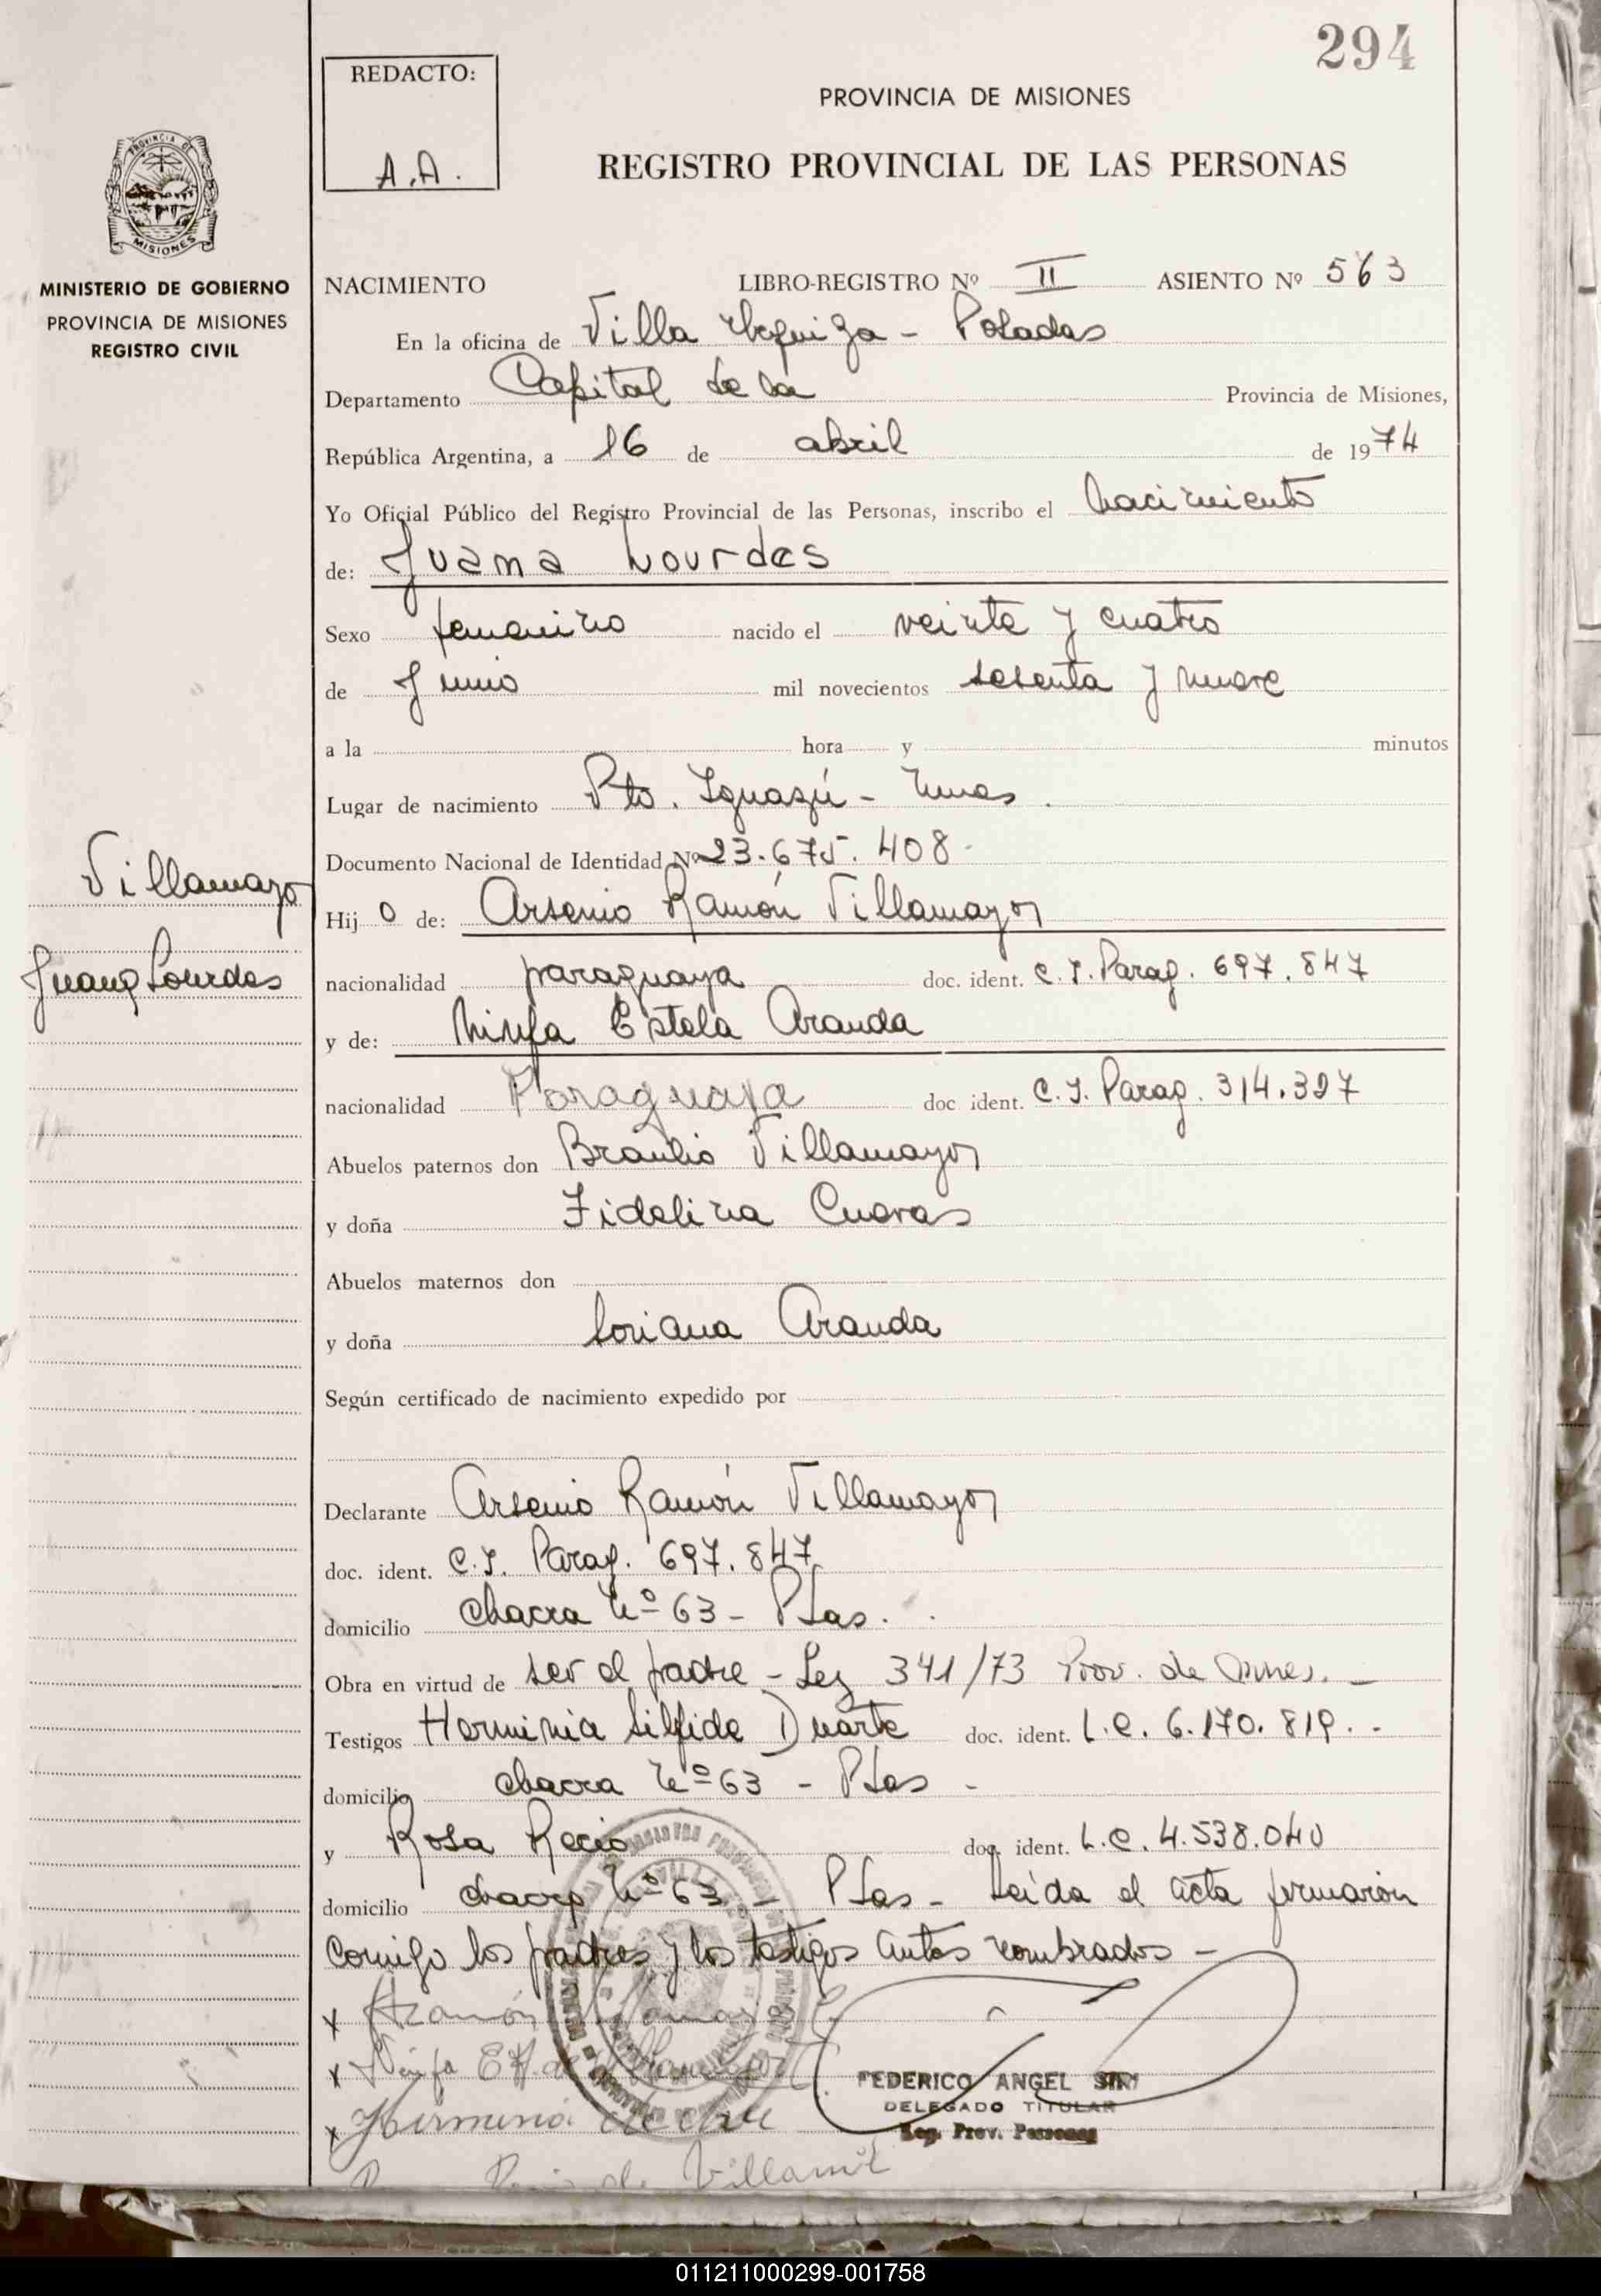 294
REDACTO:
A.A.
PROVINCIA DE MISIONES
REGISTRO PROVINCIAL DE LAS PERSONAS
PROVINCIA DE
MISIONES
MINISTERIO DE GOBIERNO
PROVINCIA DE MISIONES
REGISTRO CIVIL
NACIMIENTO LIBRO-REGISTRO Nº II ASIENTO Nº 563
En la oficina de Villa Urquiza - Posadas
Departamento Capital de la Provincia de Misiones,
República Argentina, a 16 de abril de 1974
Yo Oficial Público del Registro Provincial de las Personas, inscribo el nacimiento
de: Juana Lourdes
Sexo femenino nacido el veinte y cuatro
de Junio mil novecientos sesenta y nueve
a la hora y minutos
Lugar de nacimiento Pto. Iguazú - Mnes.
Documento Nacional de Identidad Nº 23.675.408-
Villamayo
Hij o de: Arsenio Ramón Villamayor
Juana Lourdes
nacionalidad paraguaya doc. ident. C.I. Parag. 697.847
y de: Ninfa Estela Aranda
nacionalidad Paraguaya doc ident. C.I. Parag. 314.397
Abuelos paternos don Braulio Villamayor
y doña Fidelina Cuevas
Abuelos maternos don
y doña Loriana Aranda
Según certificado de nacimiento expedido por
Declarante Arsenio Ramón Villamayor
doc. ident. C.I. Parag. 697.847
domicilio chacra Nº 63 - Psas.
Obra en virtud de ser el padre - Ley 341/73 Prov. de Mnes. -
Testigos Herminia Silfide Duarte doc. ident. L.C. 6.170.819.-
domicilio chacra Nº 63 - Psas -
y Rosa Recio doc. ident. L.C. 4.538.040
domicilio chacra Nº 63 - Psas - Leída el acta firmaron
comigo los padres y los testigos antes nombrados -
x Ramón
x Ninfa E A. de Villamayor
x Herminia
de Villamil
FEDERICO ANGEL SIRI
DELEGADO TITULAR
Reg. Prov. Personas
011211000299-001758